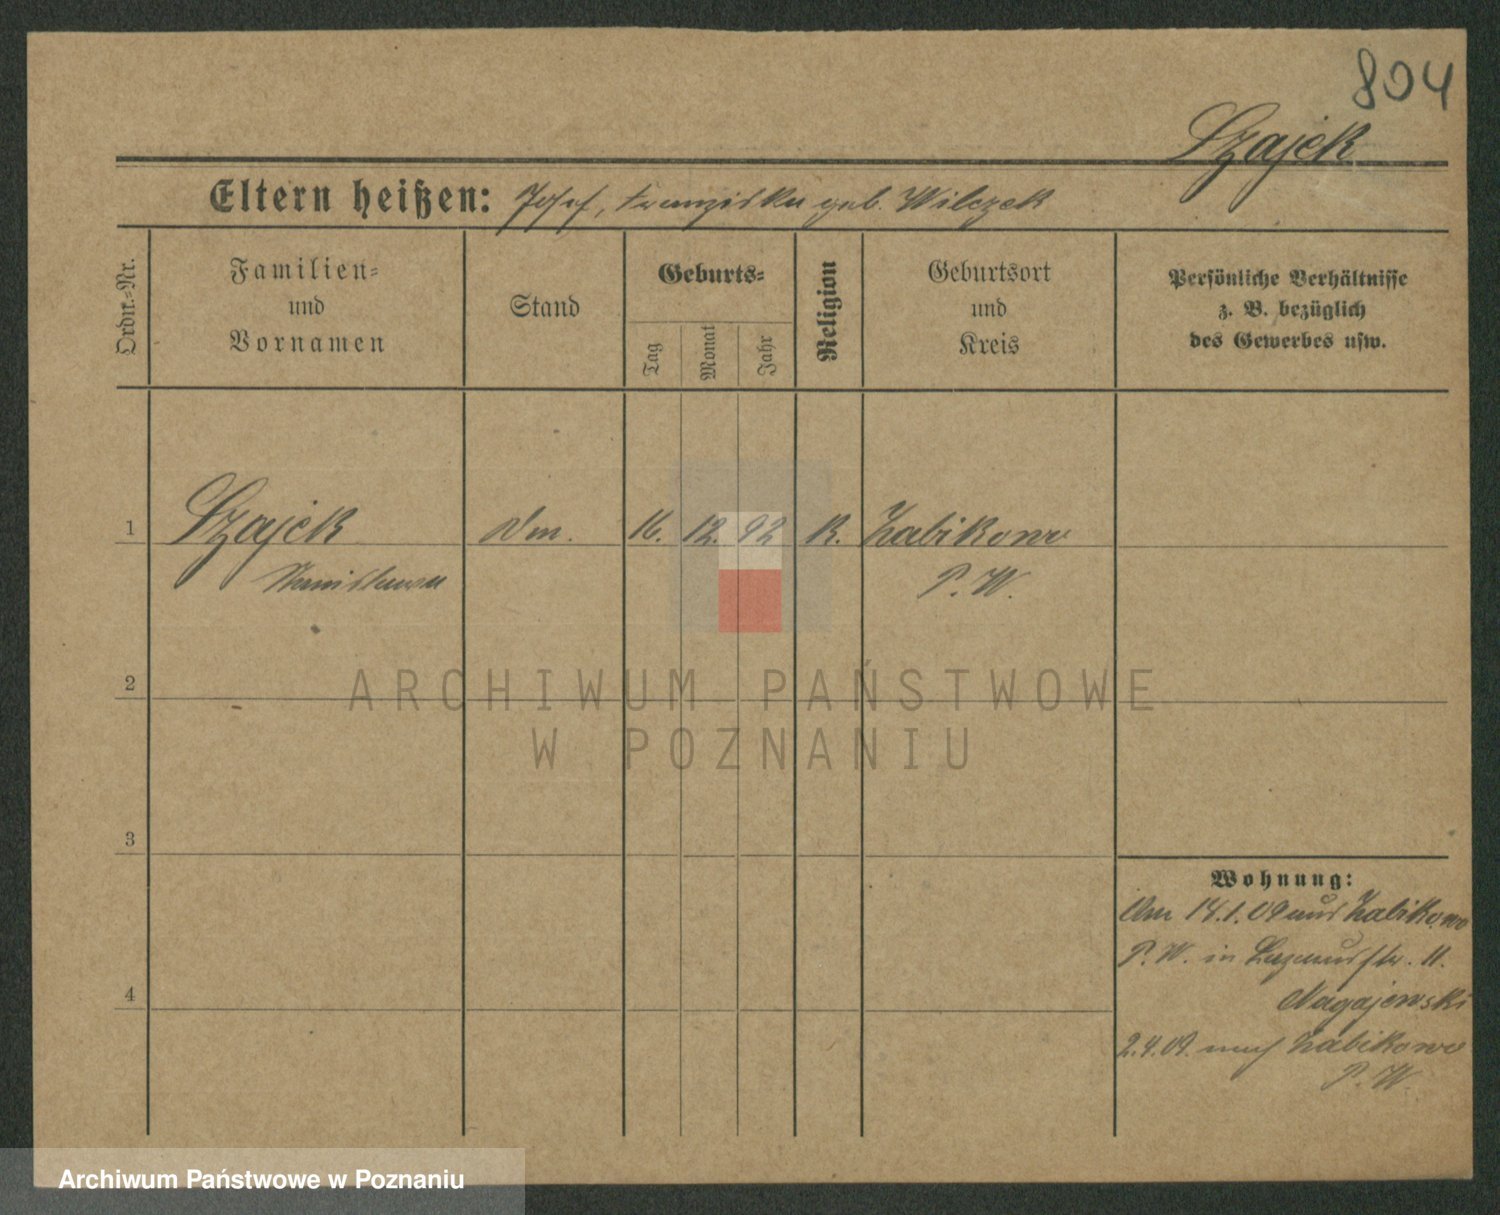 804
Szajek
Eltern heißen: Josef, Franziska geb. Wilczek
Ordn.-Nr.
Familien-
und
Vornamen
Stand
Geburts-
Tag
Monat
Jahr
Religion
Geburtsort
und
Kreis
Persönliche Verhältnisse
z. B. bezüglich
des Gewerbes usw.
1 Szajek 16. 12. 92 K. Zabikowo
Stanislawa P. W.
2
3
4
Wohnung:
Am 14.1.09 aus Zabikowo
P. W. in 11.
Nagajewski
2.4.09. nach Zabikowo
P. W.
ARCHIWUM PAŃSTWOWE
W POZNANIU
Archiwum Państwowe w Poznaniu